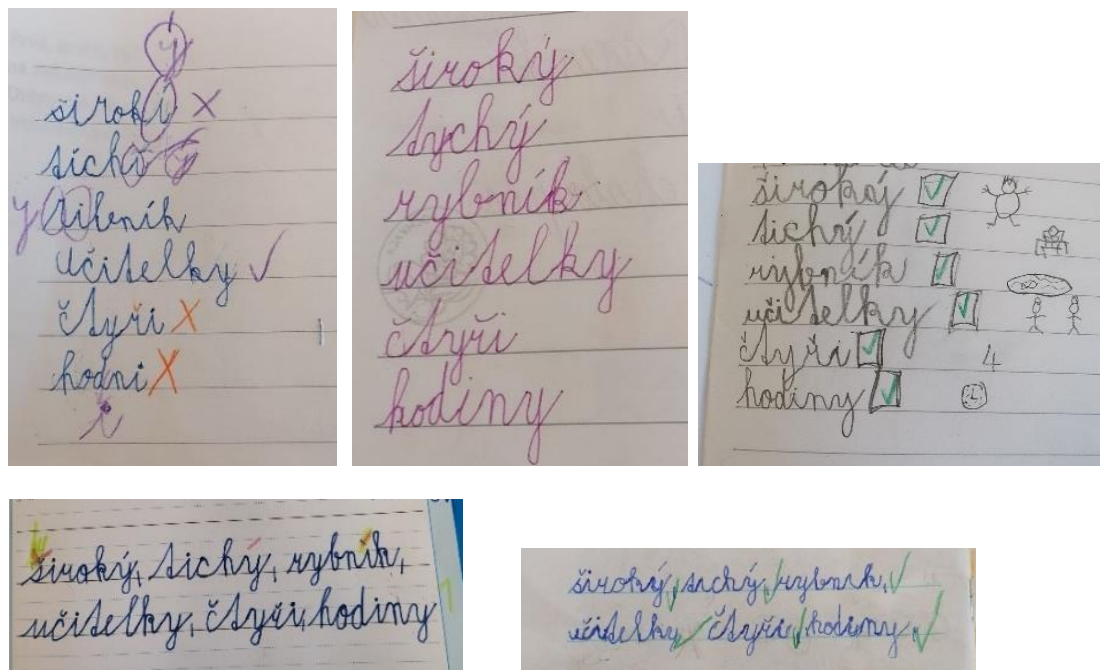 y
široki x
tichý y
y ribník
učitelky ✓
čtyři x
hodni x
i
široký
tychý
rybník
učitelky
čtyři
hodiny
široký ✓
tichý ✓
rybník ✓
učitelky ✓
čtyři ✓ 4
hodiny ✓
široký, tichý, rybník,
učitelky, čtyři, hodiny
široký, tichý, rybnik,
učitelky čtyři, hodiny